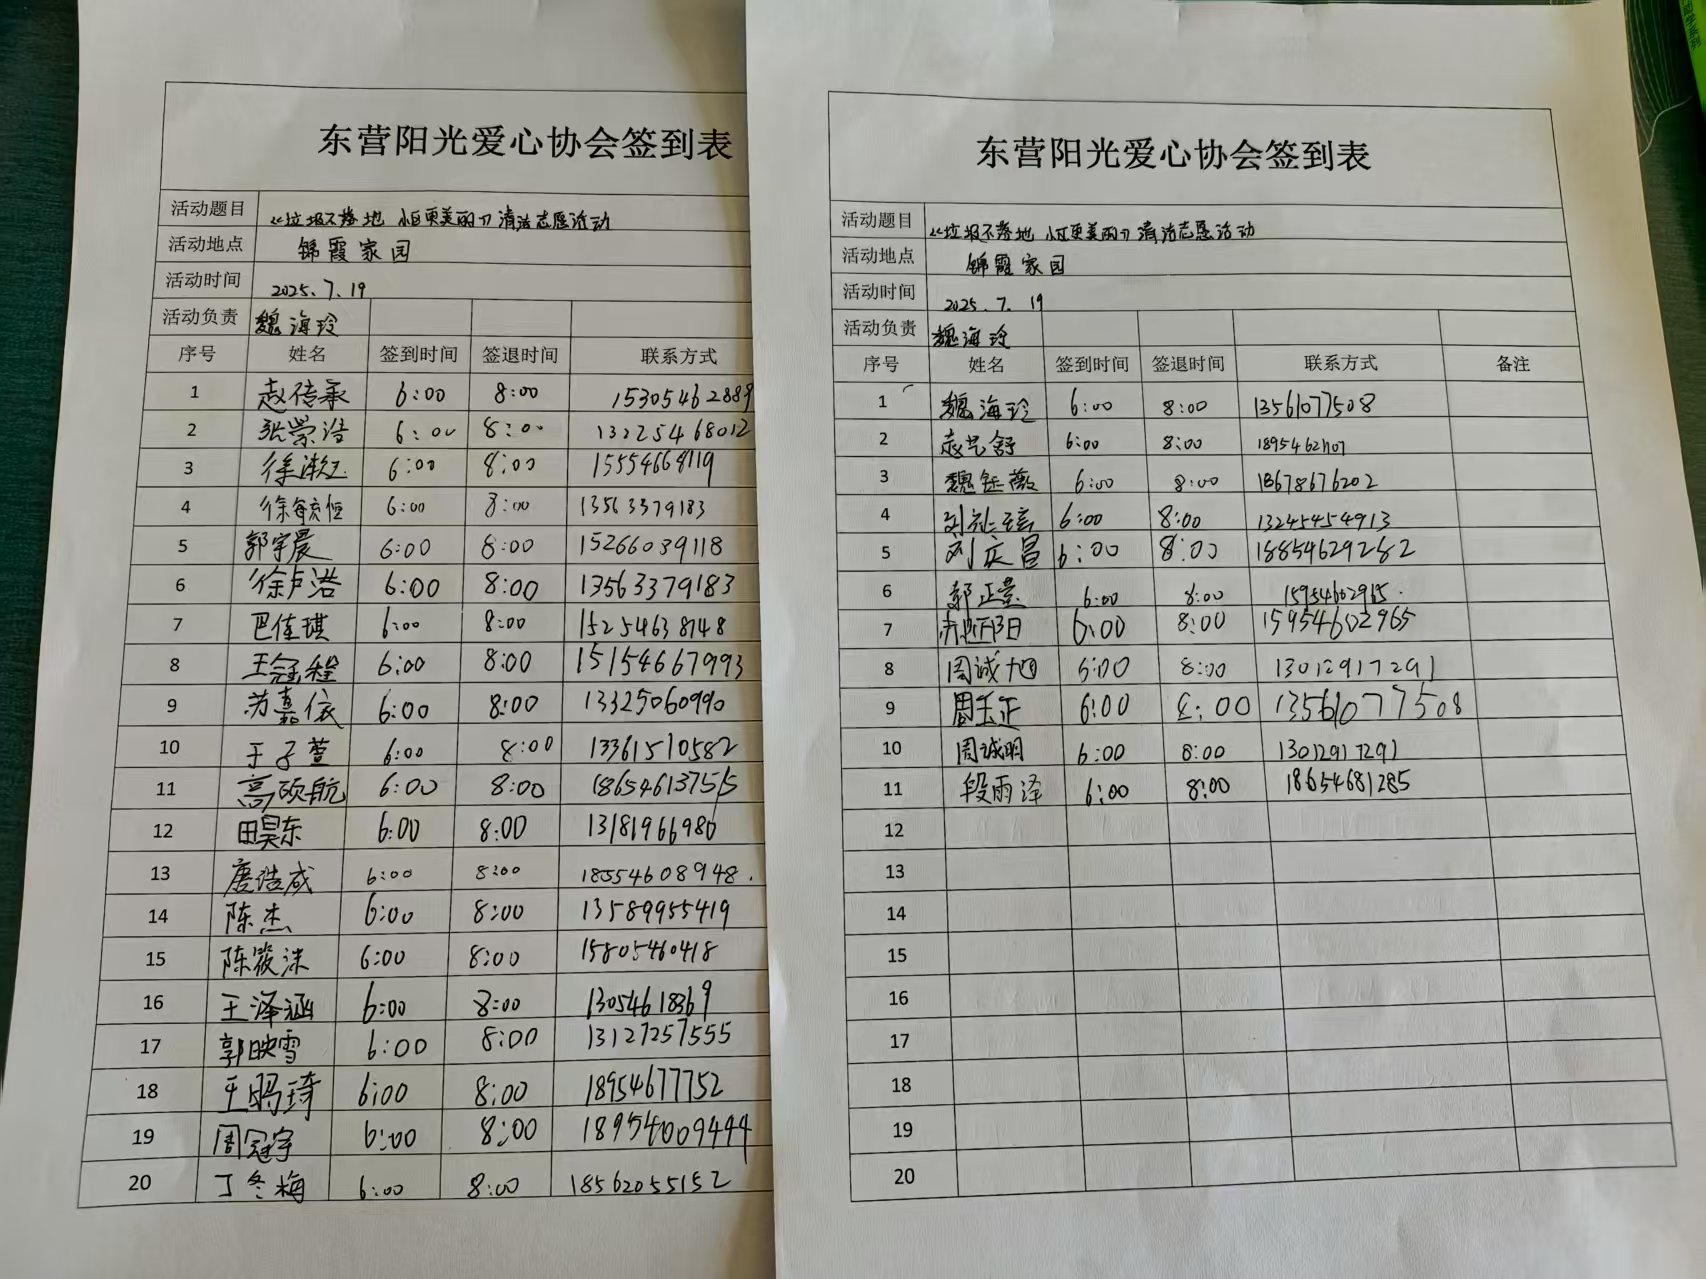 东营阳光爱心协会签到表
活动题目 《垃圾不落地 小区更美丽》清洁志愿活动
活动地点 锦霞家园
活动时间 2025.7.19
活动负责 魏海玲
序号 姓名 签到时间 签退时间 联系方式
1 赵传承 6:00 8:00 1530546288
2 张荣浩 6:00 8:00 13225468012
3 徐 6:00 8:00 15554668119
4 徐毓恒 6:00 8:00 13563379183
5 郭宇晨 6:00 8:00 15266039118
6 徐卢浩 6:00 8:00 13563379183
7 巴佳琪 6:00 8:00 15254638148
8 王冠程 6:00 8:00 15154667993
9 苏嘉依 6:00 8:00 13325060990
10 于子萱 6:00 8:00 13361510582
11 高硕航 6:00 8:00 18654613755
12 田昊东 6:00 8:00 13181966986
13 唐浩成 6:00 8:00 18554608948.
14 陈杰 6:00 8:00 13589955419
15 陈筱沫 6:00 8:00 15805460418
16 王泽涵 6:00 8:00 13054618369
17 郭映雪 6:00 8:00 13127257555
18 王鹍琦 6:00 8:00 18954677752
19 周冠宇 6:00 8:00 18954009444
20 丁冬梅 6:00 8:00 18562055152
东营阳光爱心协会签到表
活动题目 《垃圾不落地 小区更美丽》清洁志愿活动
活动地点 锦霞家园
活动时间 2025.7.19
活动负责 魏海玲
序号 姓名 签到时间 签退时间 联系方式 备注
1 魏海玲 6:00 8:00 13561077508
2 赵艺舒 6:00 8:00
3 魏钰薇 6:00 8:00 18678676202
4 刘 6:00 8:00 13245454913
5 刘庆昌 6:00 8:00 18854629282
6 郭正景 6:00 8:00 15954602965.
7 6:00 8:00 15954602965
8 周诚旭 6:00 8:00 13012917291
9 周玉正 6:00 8:00 13561077508
10 周诚明 6:00 8:00 13012917291
11 段雨泽 6:00 8:00 18654681285
12
13
14
15
16
17
18
19
20